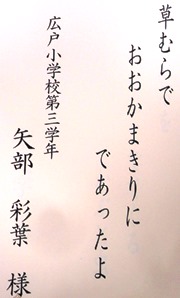 草むらで
おおかまきりに
であったよ
広戸小学校第三学年
矢部 彩葉 様